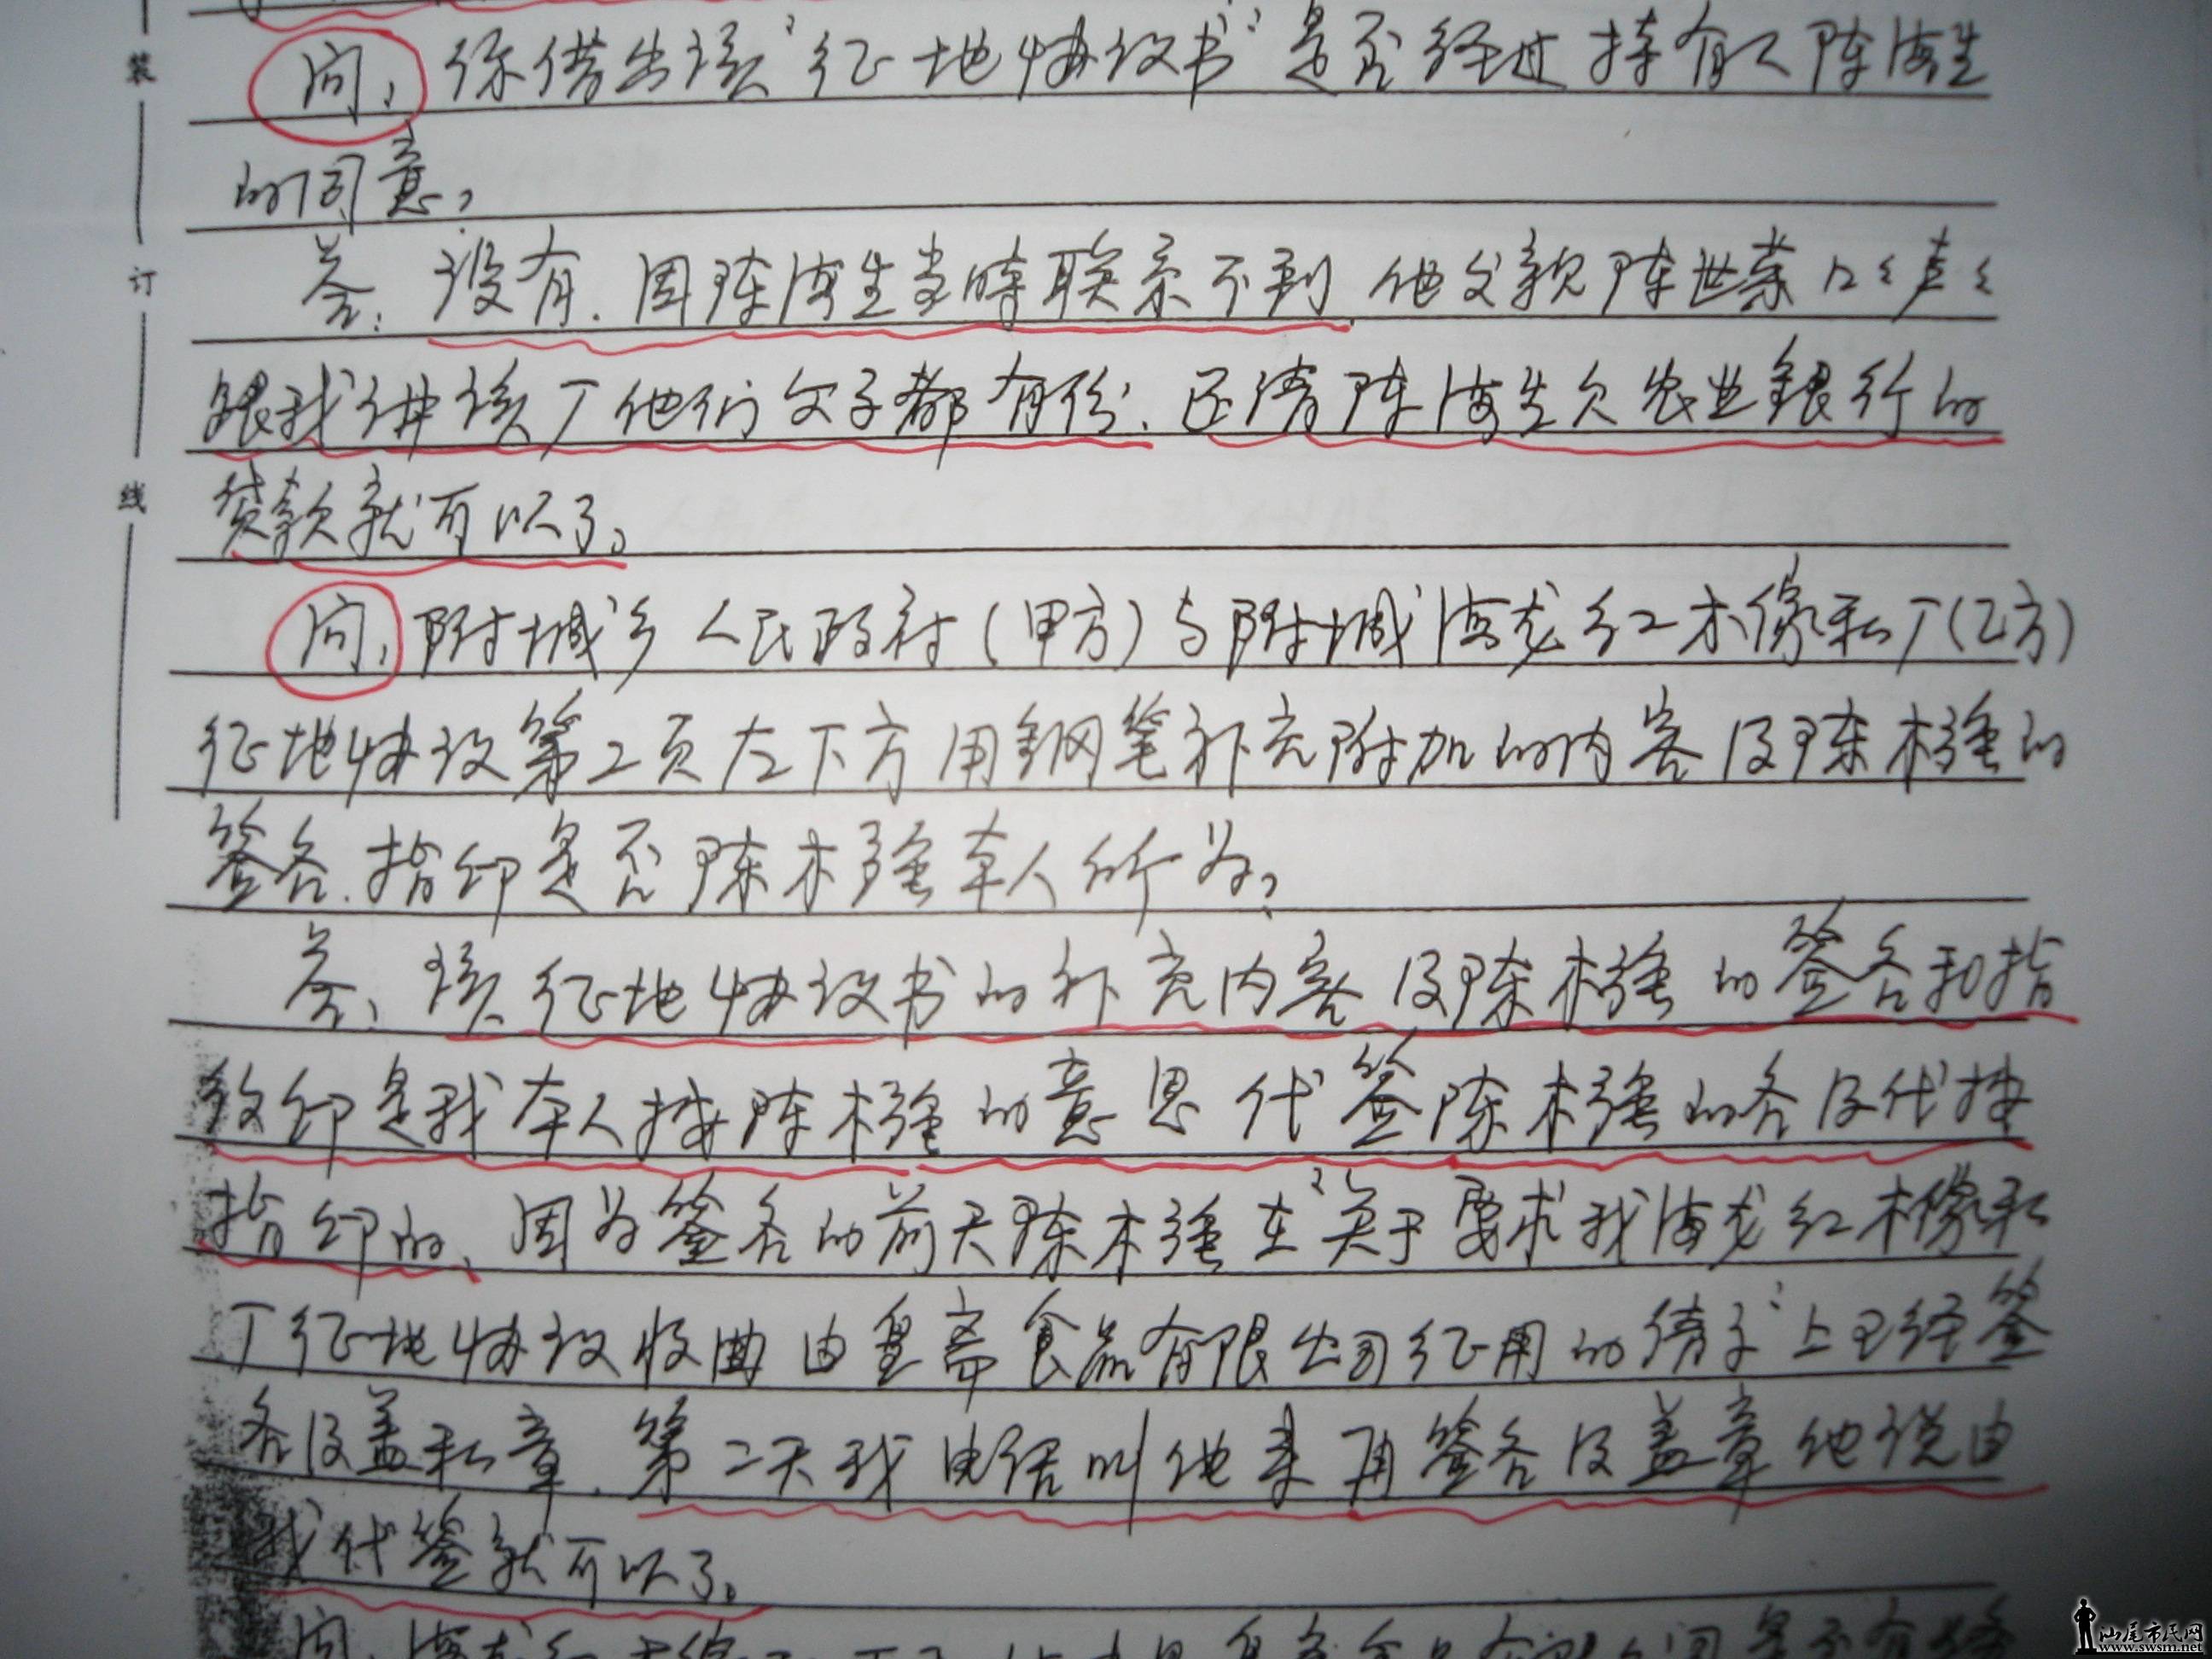 装
订
线
问：你借出该"征地协议书"是否经过持有人陈海生
的同意？
答：没有.因陈海生当时联系不到.他父亲陈世荣口々声々
跟我讲该厂他们父子都有份.还清陈海生欠农业銀行的
贷款就可以了。
问：附城乡人民政府(甲方)与附城海龙红木傢私厂(乙方)
征地协议第二页左下方用钢笔补充附加的内容及陈木强的
签名.指印是否陈木强本人所为？
答：该征地协议书的补充内容及陈木强的签名和指
纹印是我本人按陈木强的意思代签陈木强的名及代按
指印的、因为签名的前天陈木强在"关于要求我海龙红木傢私
厂征地协议收曲由皇斋食品有限公司征用的请示"上已经签
名及盖私章.第二天我电话叫他来再签名及盖章他说由
我代签就可以了。
汕尾市民网
www.swsm.net